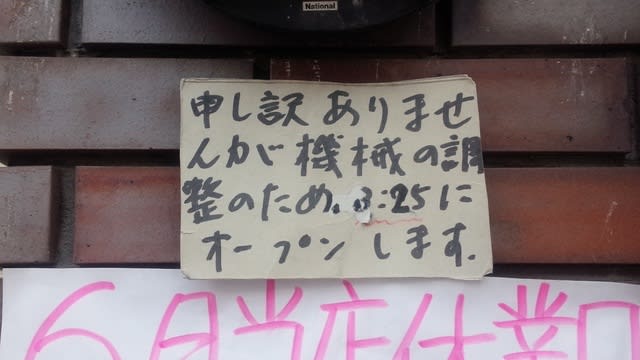 National
申し訳ありませ
んが機械の調
整のため.3:25に
オープンします.
6月当店休業日